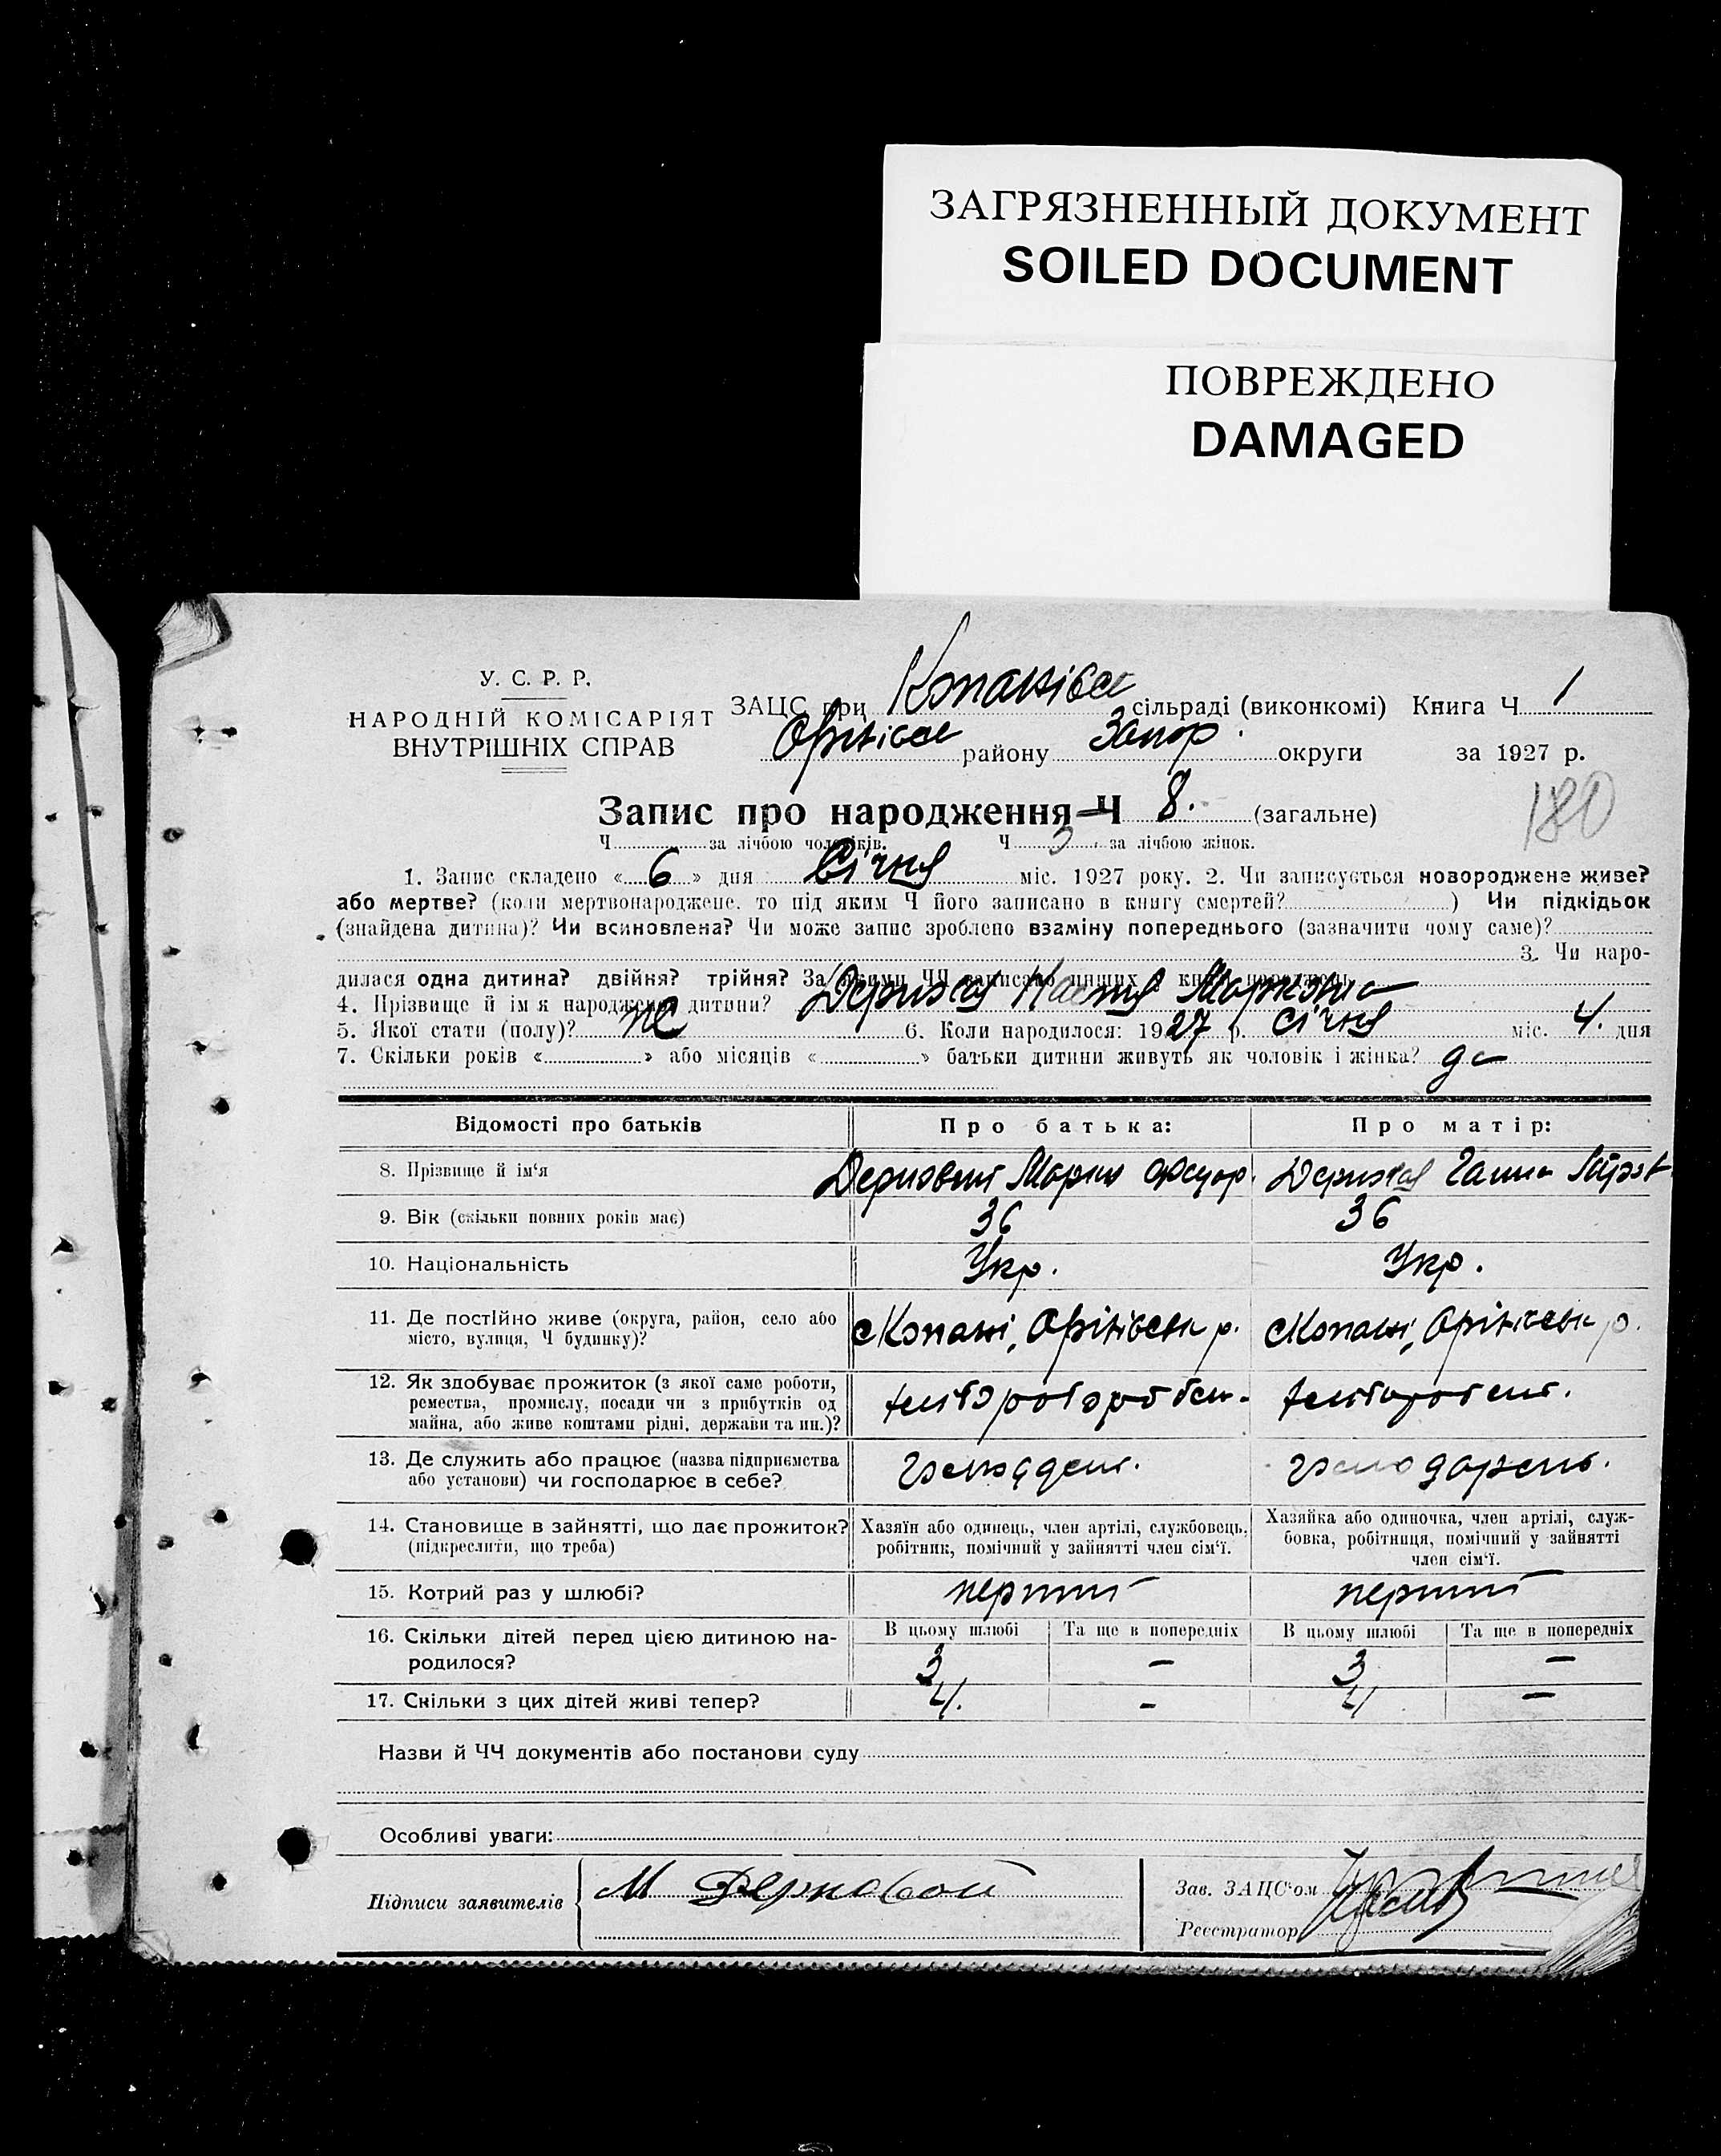 ЗАГРЯЗНЕННЫЙ ДОКУМЕНТ
SOILED DOCUMENT
ПОВРЕЖДЕНО
DAMAGED
У. С. Р. Р.
НАРОДНІЙ КОМІСАРІЯТ
ВНУТРІШНІХ СПРАВ
ЗАЦС при Копанівск сільраді (виконкомі) Книга Ч 1
району Запор. округи за 1927 р.
Запис про народження Ч 8. (загальне)
180
Ч за лічбою чоловіків. Ч 3 за лічбою жінок.
1. Запис складено « 6 » дня Січня міс. 1927 року. 2. Чи записується новороджене живе?
або мертве? (коли мертвонароджене, то під яким Ч його записано в книгу смертей? ) Чи підкідьок
(знайдена дитина)? Чи всиновлена? Чи може запис зроблено взаміну попереднього (зазначити чому саме)?
3. Чи наро-
дилася одна дитина? двійня? трійня? За якими ЧЧ записано инших в книгу народжень
4. Прізвище й ім я народженої дитини?
5. Якої стати (полу)? 6. Коли народилося: 1927 р. січня міс. 4. дня
7. Скільки років « » або місяців « » батьки дитини живуть як чоловік і жінка? да
Відомості про батьків Про батька: Про матір:
8. Прізвище й ім‘я Ганна
9. Вік (скільки повних років має) 36 36
10. Національність Укр. Укр.
11. Де постійно живе (округа, район, село або
місто, вулиця, Ч будинку)? с Копані, р. с Копані, р.
12. Як здобуває прожиток (з якої саме роботи,
ремества, промислу, посади чи з прибутків од
майна, або живе коштами рідні, держави та ин.)?
13. Де служить або працює (назва підприємства
або установи) чи господарює в себе?
14. Становище в зайнятті, що дає прожиток?
(підкреслити, що треба)
Хазяїн або одинець, член артілі, службовець,
робітник, помічний у зайнятті член сім‘ї.
Хазяйка або одиночка, член артілі, служ-
бовка, робітниця, помічний у зайнятті
член сім‘ї.
15. Котрий раз у шлюбі? перший перший
16. Скільки дітей перед цією дитиною на-
родилося?
В цьому шлюбі Та ще в попередніх В цьому шлюбі Та ще в попередніх
3 — 3 —
17. Скільки з цих дітей живі тепер? 4. - 4 —
Назви й ЧЧ документів або постанови суду
Особливі уваги:
Підписи заявителів М Дерновой
Зав. ЗАЦС‘ом
Реєстратор